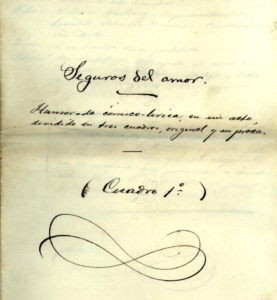 Seguros del amor.
Humorada cómico-lírica, en un acto,
dividido en tres cuadros, original y en prosa.
( Cuadro 1º )